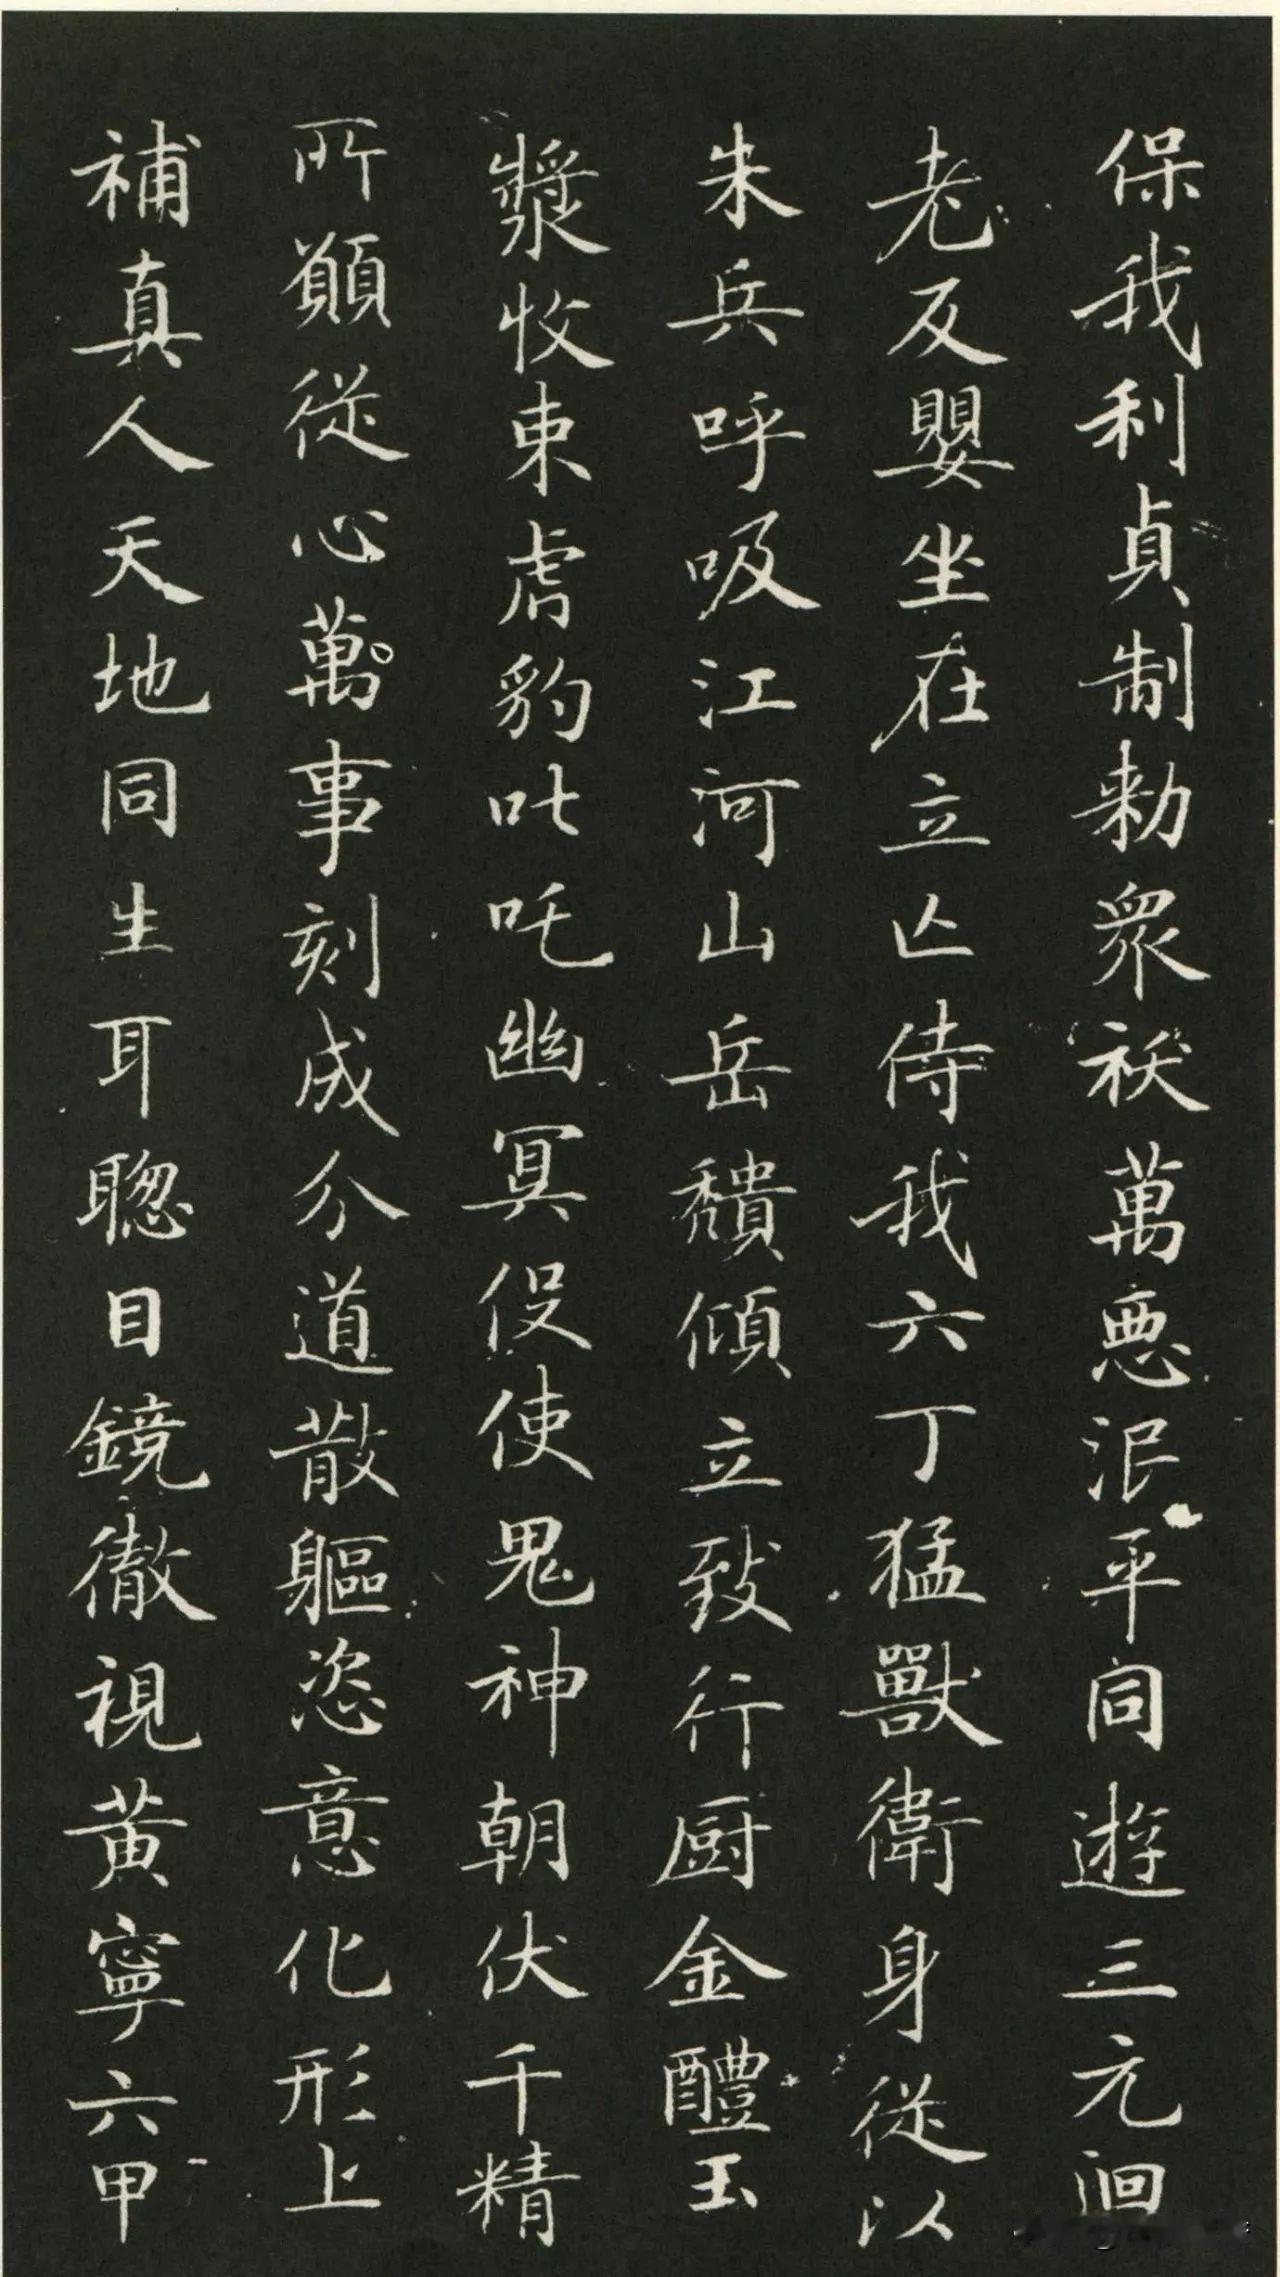 保我利貞制勑眾袄萬惡泯平同遊三元迴
老反嬰坐在立亾侍我六丁猛獸衛身從以
朱兵呼吸江河山岳穨傾立致行厨金醴玉
漿收束虎豹叱吒幽冥伇使鬼神朝伏千精
所願從心萬事刻成分道散軀恣意化形上
補真人天地同生耳聰目鏡徹視黃寧六甲